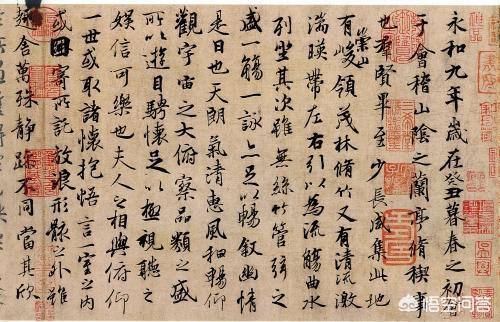 永和九年歲在癸丑暮春之初會
于會稽山陰之蘭亭脩稧事
也群賢畢至少長咸集此地
有崇山峻領茂林脩竹又有清流激
湍暎帶左右引以為流觴曲水
列坐其次雖無絲竹管弦之
盛一觴一詠亦足以暢敘幽情
是日也天朗氣清惠風和暢仰
觀宇宙之大俯察品類之盛
所以遊目騁懷足以極視聽之
娛信可樂也夫人之相與俯仰
一世或取諸懷抱悟言一室之內
或因寄所託放浪形骸之外雖
趣舍萬殊靜躁不同當其欣
悟空问答